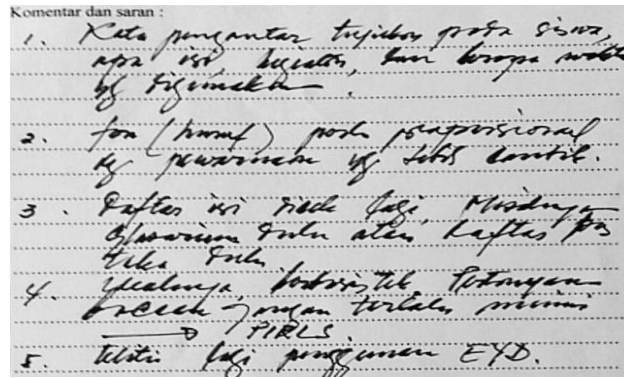 Komentar dan saran :
1. Kata pengantar tujukan pada siswa,
apa isi, kegiatan, dan berapa waktu
yg digunakan.
2. fon (huruf) pada
dg pewarnaan yg lebih cantik.
3. Daftar isi cek lagi, Misalnya
Glosarium dulu atau daftar pus
taka dulu
4. Idealnya, Pertanyaan
jangan terlalu
→ PIRLS.
5. teliti lagi penggunaan EYD.